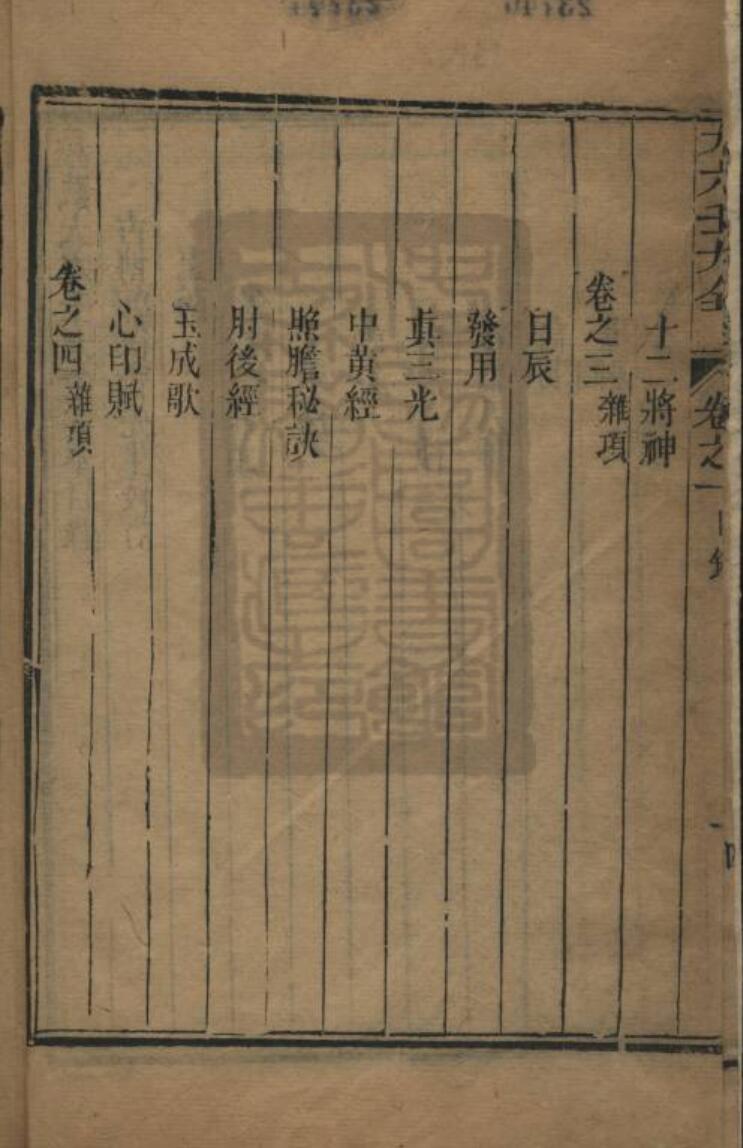 大六壬大全 卷之一 目錄
十二將神
卷之三 雜項
日辰
發用
真三光
中黃經
照膽秘訣
肘後經
玉成歌
心印賦
卷之四 雜項